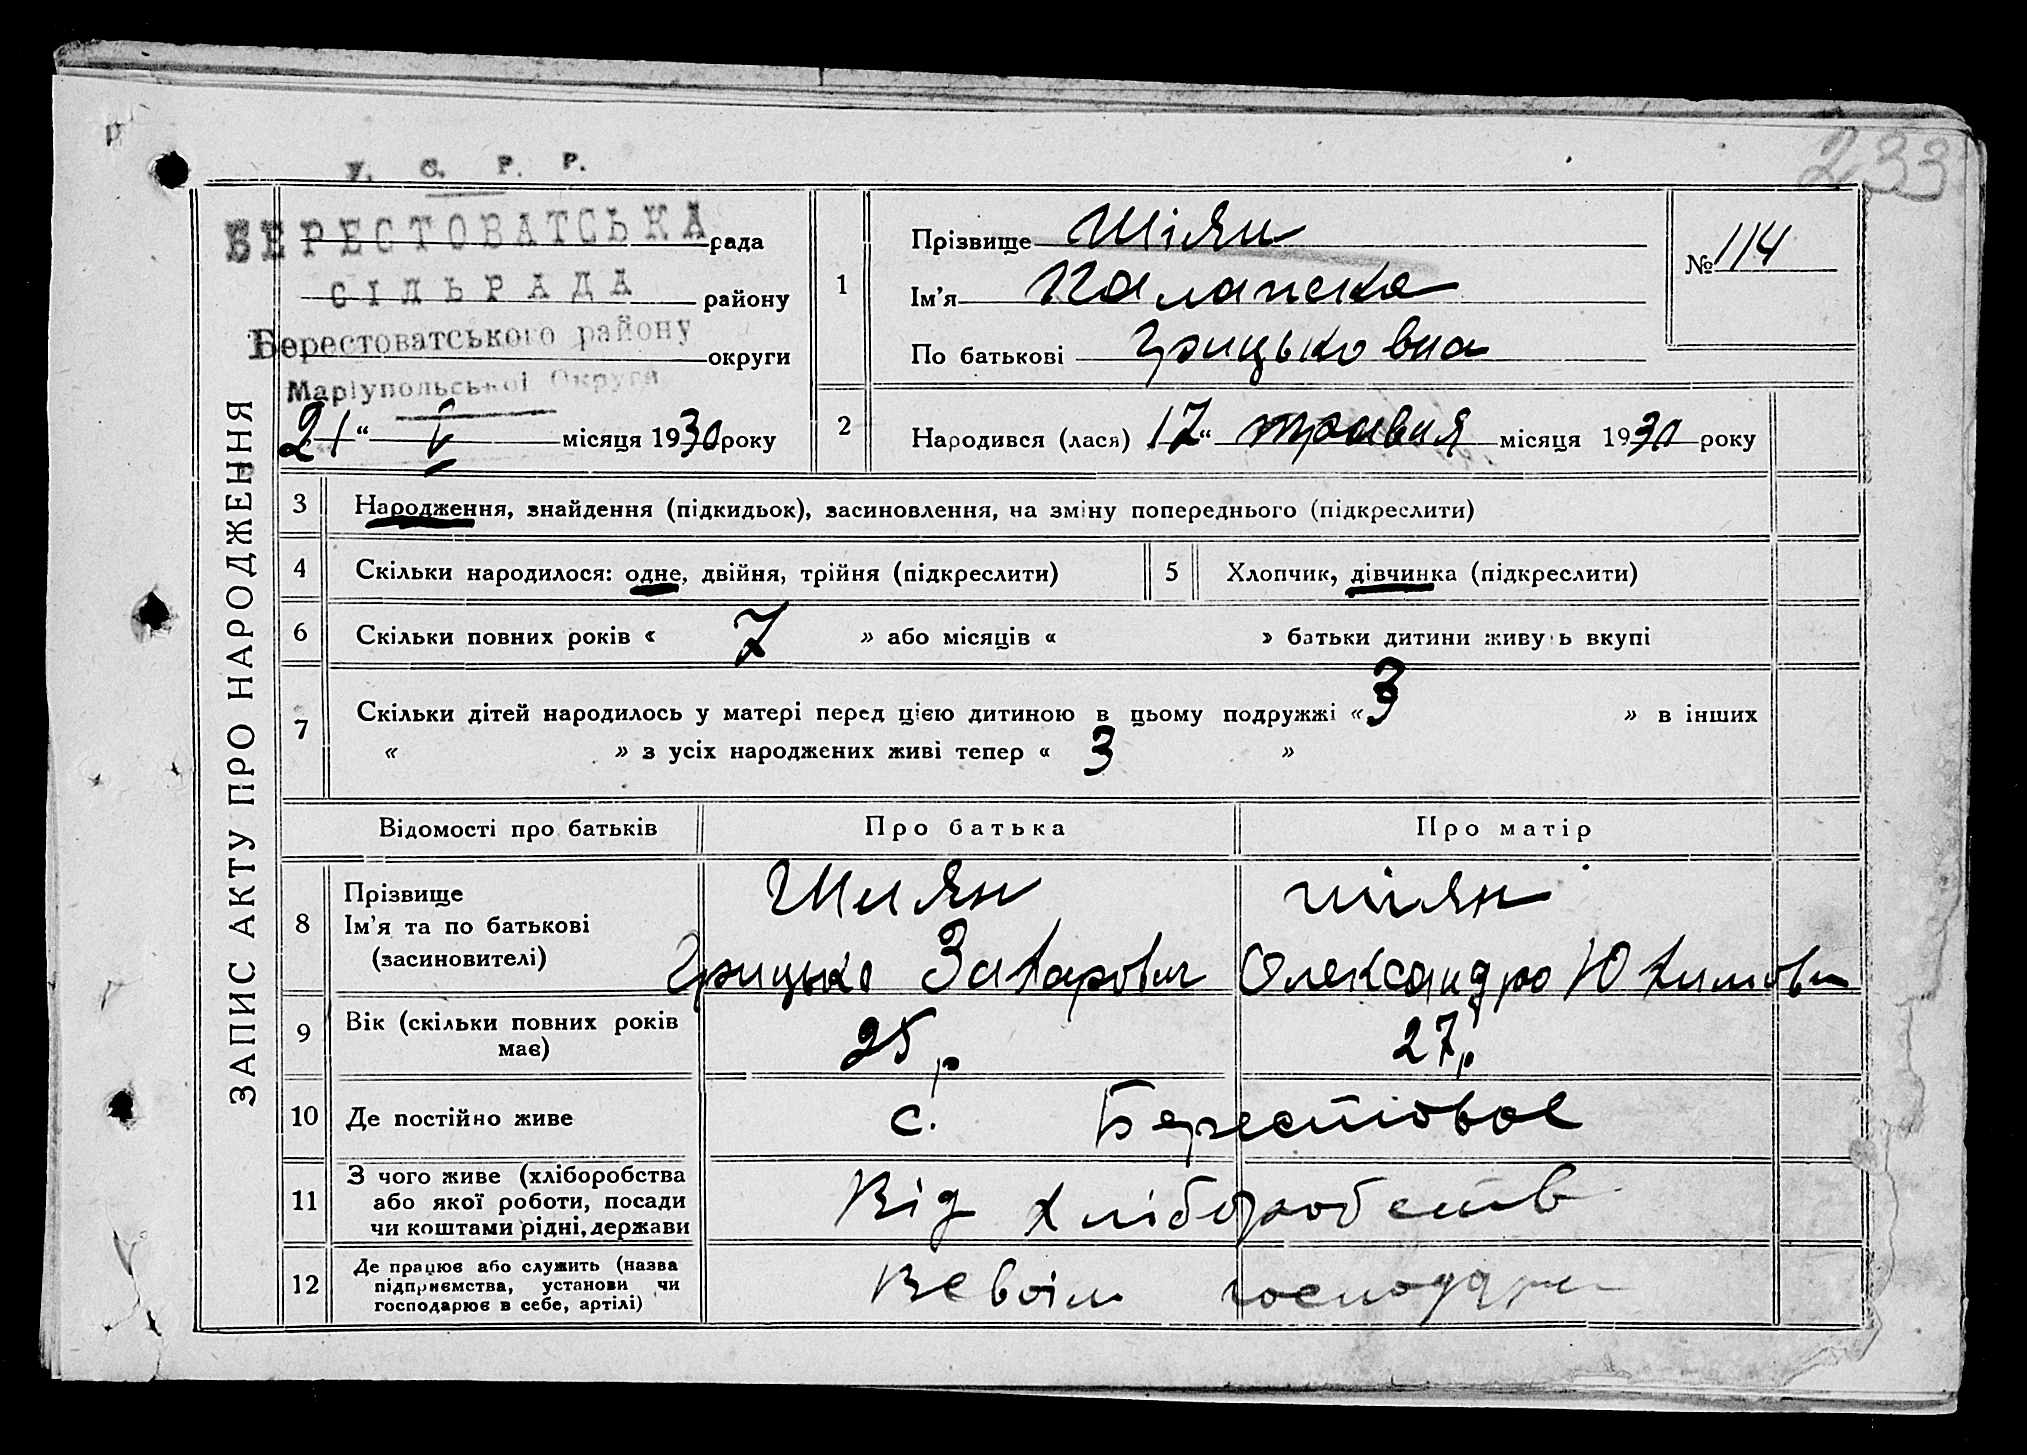 233
У. С. Р. Р.
БЕРЕСТОВАТСЬКА рада
СІЛЬРАДА району
Берестоватського району округи
Маріупольської Округи
21 " V місяця 1930 року
1
Прізвище Шіян
Ім'я Палапека
По батькові Грицьковна
№ 114
2
Народився (лася) 17 " травня місяця 1930 року
ЗАПИС АКТУ ПРО НАРОДЖЕННЯ
3 Народження, знайдення (підкидьок), засиновлення, на зміну попереднього (підкреслити)
4 Скільки народилося: одне, двійня, трійня (підкреслити) 5 Хлопчик, дівчинка (підкреслити)
6 Скільки повних років « 7 » або місяців « » батьки дитини живуть вкупі
7 Скільки дітей народилось у матері перед цією дитиною в цьому подружжі « 3 » в інших
« » з усіх народжених живі тепер « 3 »
Відомості про батьків Про батька Про матір
8 Прізвище
Ім'я та по батькові
(засиновителі)
Шиян
Грицько Захарович
шіян
Олександра Юхимовн
9 Вік (скільки повних років
має)
25 р. 27 р.
10 Де постійно живе с. Берестовое
11 З чого живе (хліборобства
або якої роботи, посади
чи коштами рідні, держави
Від хліборобств
12 Де працює або служить (назва
підприємства, установи чи
господарює в себе, артілі)
В своїм господар